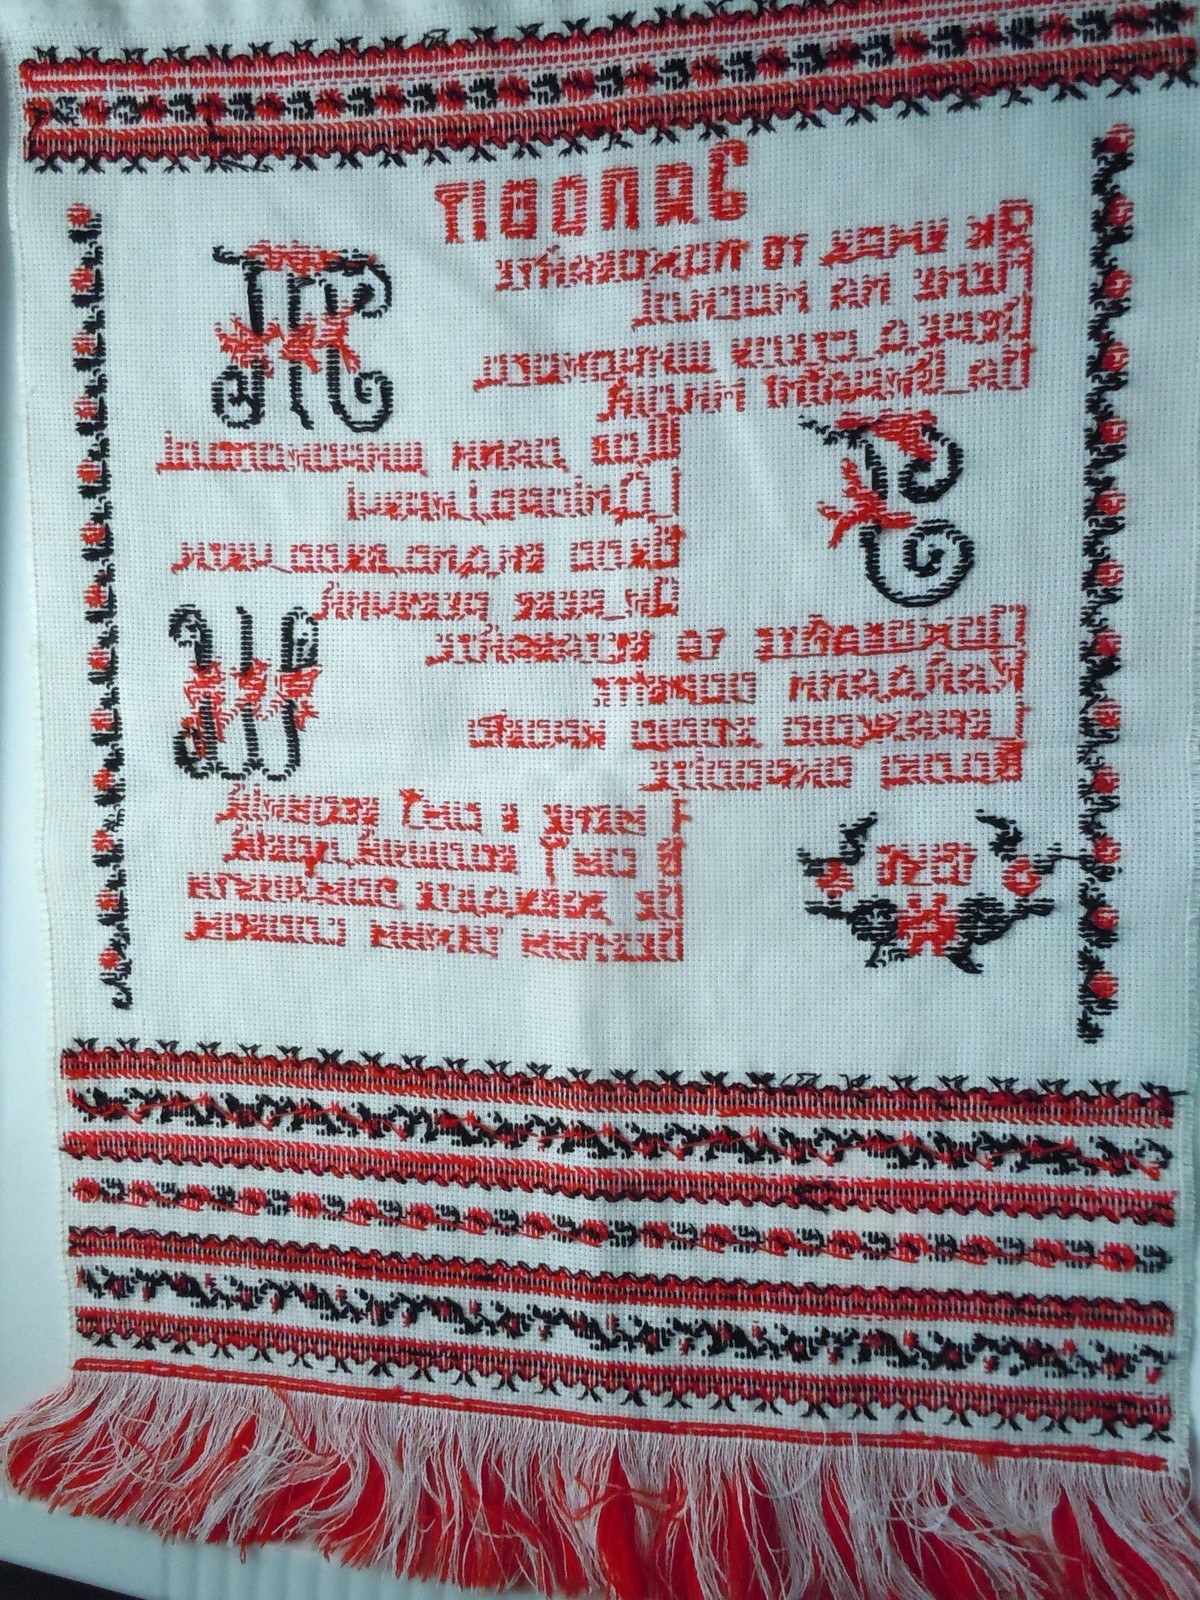 Заповіт
Як умру то поховайте
Мене на могилі
Серед степу широкого
На Вкраїні милій
Т
Щоб лани широкополі
І Дніпро і кручі
Було видно було чути
Як реве ревучий
Г
Поховайте та вставайте
Кайдани порвіте
І вражою злою кровю
Волю окропіте
Ш
І мене в сімї великій
В сімї вольній новій
Не забудьте помянути
Незлим тихим словом